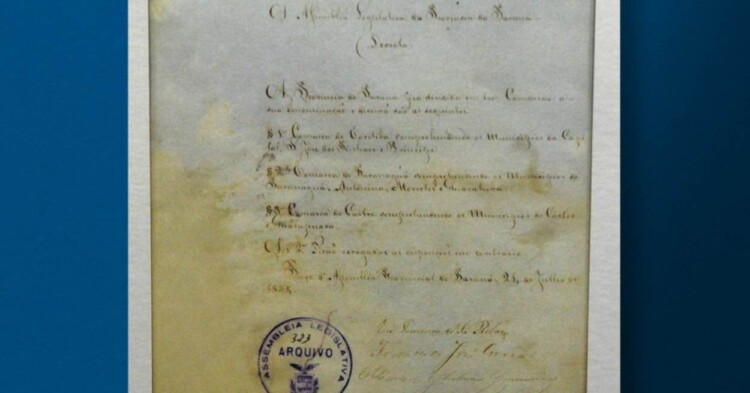 A Assemblea Legislativa da Provincia do Paraná
Decreta
A Provincia do Paraná fica dividida em tres Comarcas a
sua denominação e divisão são as seguintes
§ 1º Comarca de Coritiba comprehendendo os Municipios da Capi
tal, S. José dos Pinhaes e Principe.
§ 2º Comarca de Paranaguá comprehendendo os Municipios de
Paranaguá, Antonina, Morretes e Guaratuba
§ 3º Comarca de Castro comprehendendo os Municipios de Castro
e Guarapuava
Art. 2º Ficão revogadas as disposições em contrario
Paço d'Assemblea Provincial do Paraná, 24 de Julho de
José
ASSEMBLEIA LEGISLATIVA
323
ARQUIVO